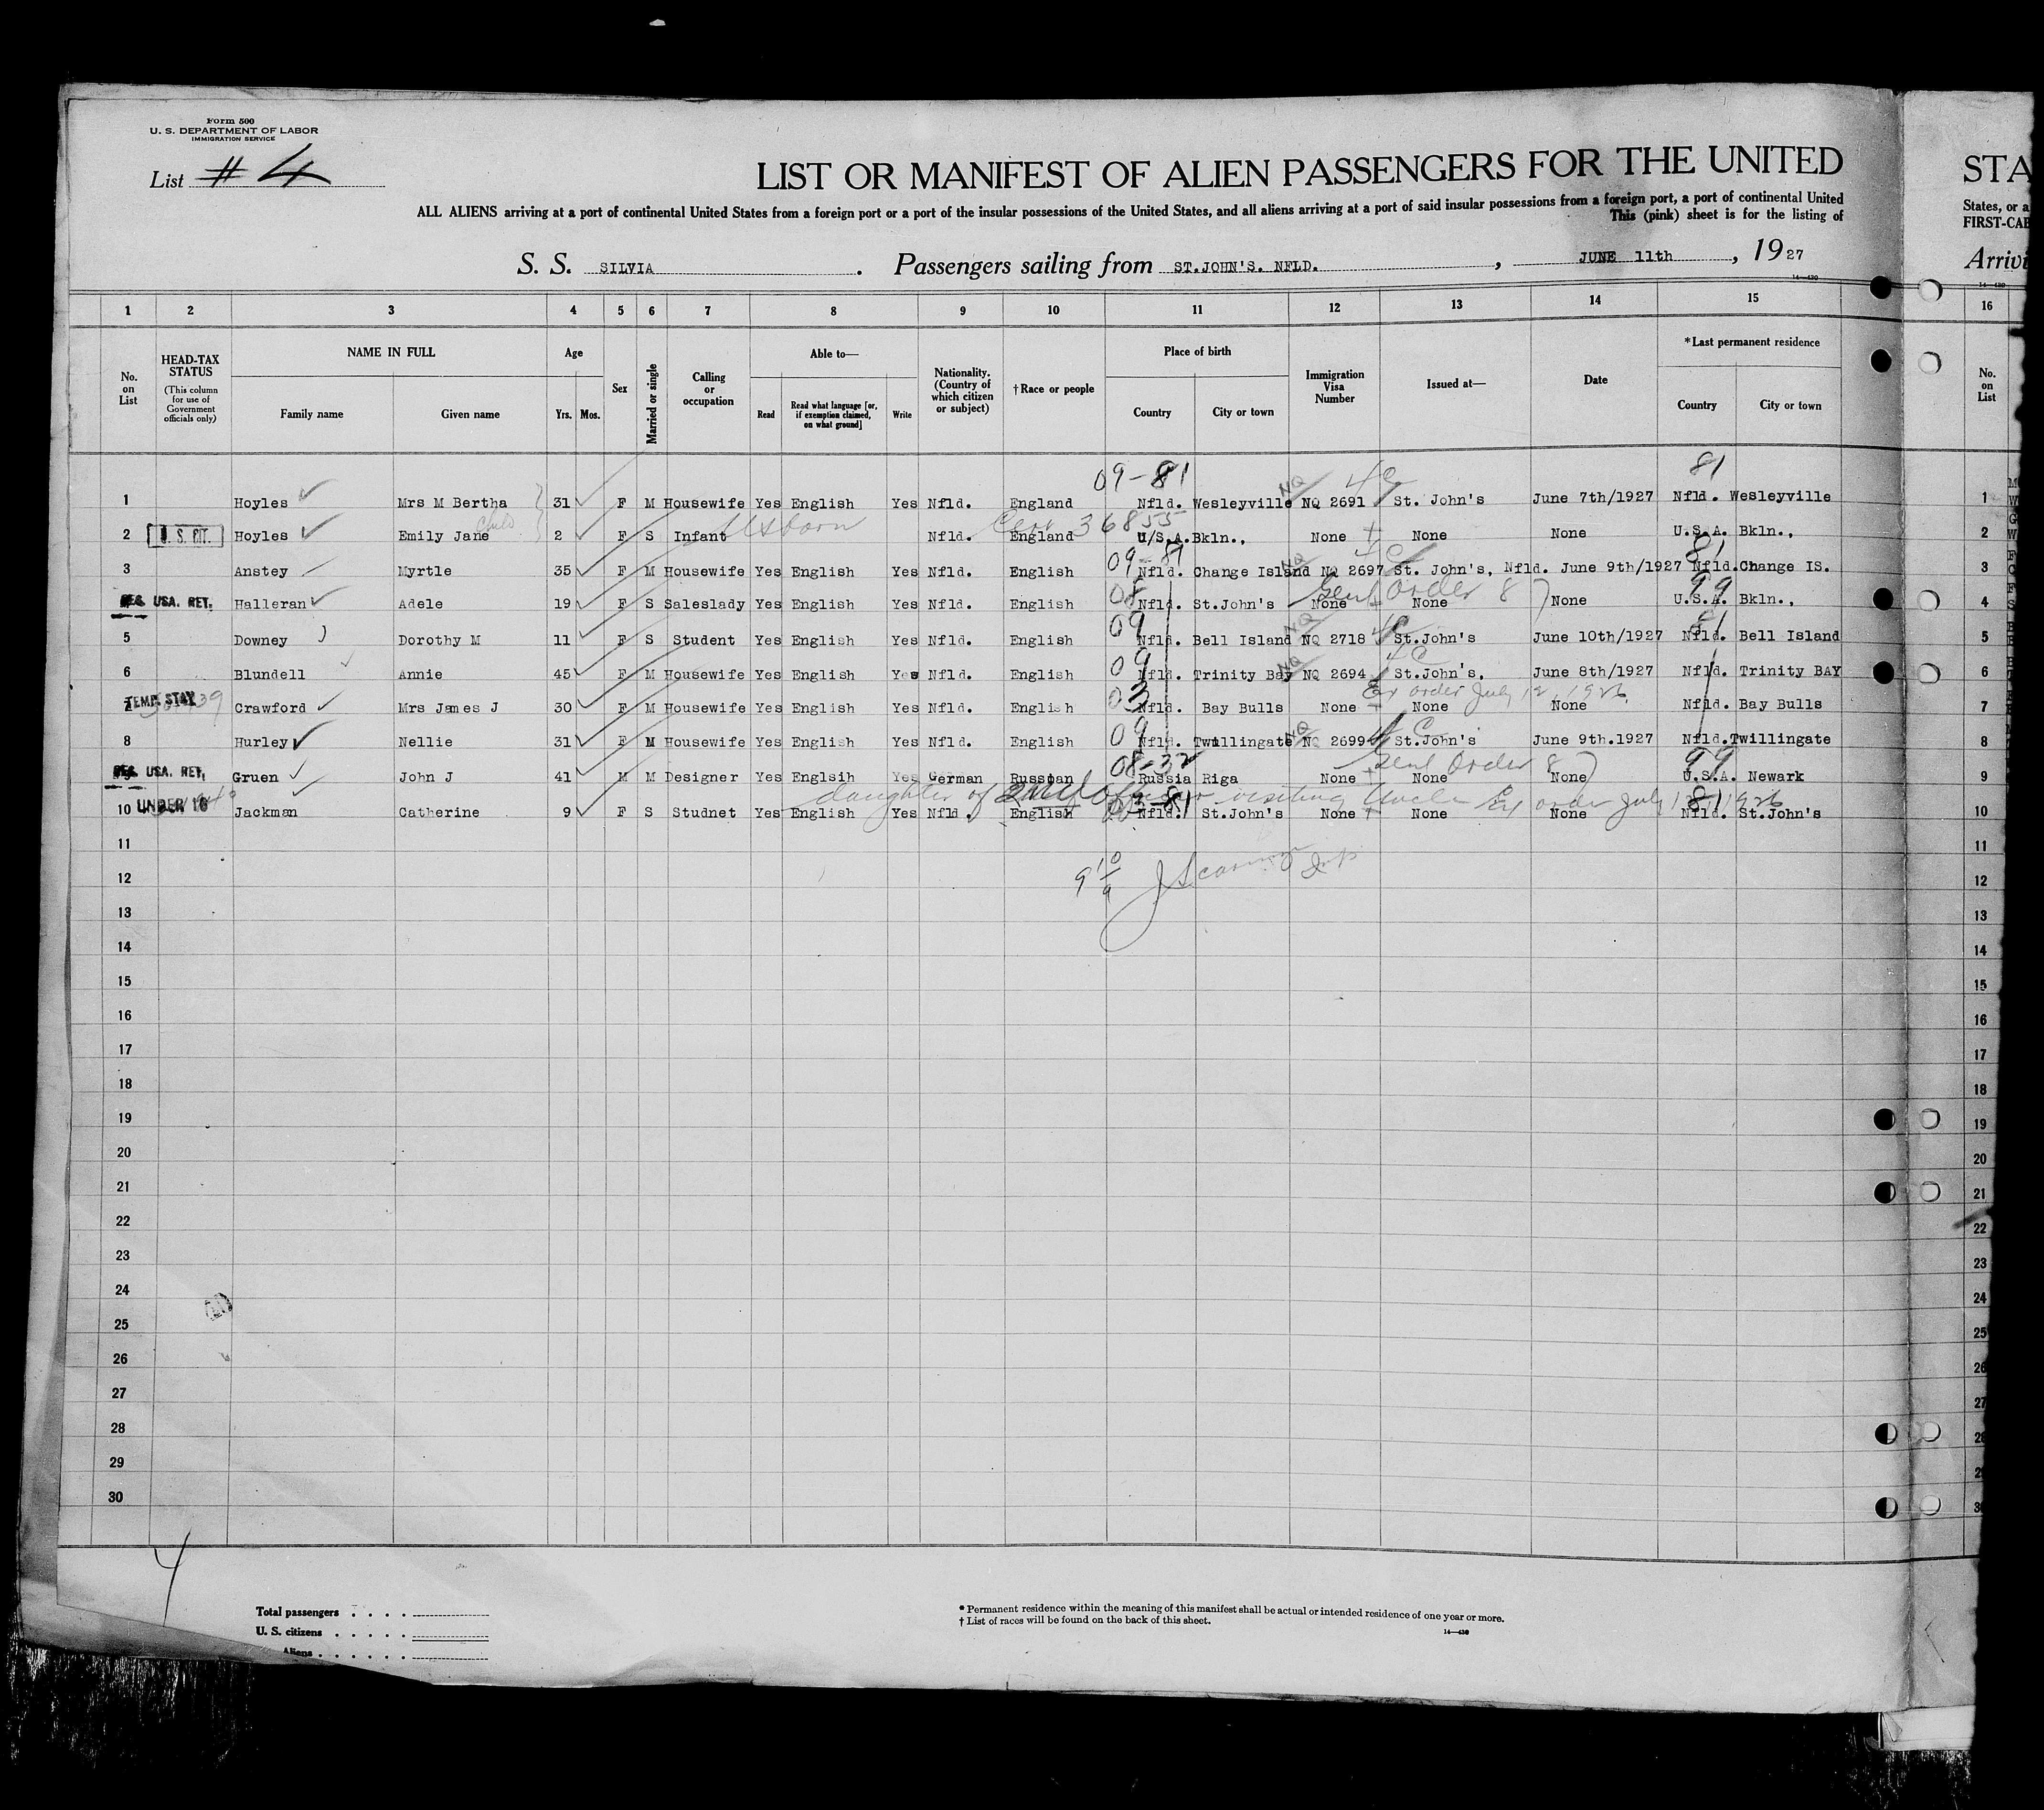 Form 500
U. S. DEPARTMENT OF LABOR
IMMIGRATION SERVICE
List # 4
LIST OR MANIFEST OF ALIEN PASSENGERS FOR THE UNITED STA
ALL ALIENS arriving at a port of continental United States from a foreign port or a port of the insular possessions of the United States, and all aliens arriving at a port of said insular possessions from a foreign port, a port of continental United States, or a
This (pink) sheet is for the listing of FIRST-CAB
S. S. SILVIA. Passengers sailing from ST.JOHN'S. NFLD., JUNE 11th, 1927 Arrivi
14—430 14—430
1 2 3 4 5 6 7 8 9 10 11 12 13 14 15 16
No. on List
HEAD-TAX STATUS
(This column for use of Government officials only)
NAME IN FULL
Family name Given name
Age
Yrs. Mos.
Sex
Married or single
Calling or occupation
Able to—
Read
Read what language [or, if exemption claimed, on what ground]
Write
Nationality. (Country of which citizen or subject)
†Race or people
Place of birth
Country City or town
Immigration Visa Number
Issued at—
Date
*Last permanent residence
Country City or town
No. on List
09-81 4C 81
1 Hoyles Mrs M Bertha 31 F M Housewife Yes English Yes Nfld. England Nfld. Wesleyville NQ NQ 2691 St. John's June 7th/1927 Nfld. Wesleyville 1
child US born Cert 36855
2 U. S. CIT. Hoyles Emily Jane 2 F S Infant Nfld. England U/S.A. Bkln., None None None U.S.A. Bkln., 2
09-81 4C 81
3 Anstey Myrtle 35 F M Housewife Yes English Yes Nfld. English Nfld. Change Island NQ NQ 2697 St. John's, Nfld. June 9th/1927 Nfld. Change IS. 3
08 Sent Order 8 99
REG. USA. RET. Halleran Adele 19 F S Saleslady Yes English Yes Nfld. English Nfld. St.John's None None None U.S.A. Bkln., 4
09 4C 81
5 Downey Dorothy M 11 F S Student Yes English Yes Nfld. English Nfld. Bell Island NQ NQ 2718 St.John's June 10th/1927 Nfld. Bell Island 5
09 4C
6 Blundell Annie 45 F M Housewife Yes English Yes Nfld. English Nfld. Trinity Bay NQ NQ 2694 St.John's. June 8th/1927 Nfld. Trinity BAY 6
03 Ex order July 12, 1926
7 TEMP. STAY Crawford Mrs James J 30 F M Housewife Yes English Yes Nfld. English Nfld. Bay Bulls None None None Nfld. Bay Bulls 7
09 4C
8 Hurley Nellie 31 F M Housewife Yes English Yes Nfld. English Nfld. Twillingate NQ NQ 2699 St.John's June 9th.1927 Nfld. Twillingate 8
08-32 Sent Order 8 99
REG. USA. RET. Gruen John J 41 M M Designer Yes Englsih Yes German Russpan Russia Riga None None None U.S.A. Newark 9
daughter of visiting Uncle Ex order July 12, 1926
03-81 81
10 UNDER 16 Jackman Catherine 9 F S Studnet Yes English Yes Nfld. English Nfld. St.John's None None None Nfld. St.John's 10
11 11
12 12
13 13
14 14
15 15
16 16
17 17
18 18
19 19
20 20
21 21
22 22
23 23
24 24
25 25
26 26
27 27
28 28
29 29
30
4
Total passengers
U. S. citizens
Aliens
* Permanent residence within the meaning of this manifest shall be actual or intended residence of one year or more.
† List of races will be found on the back of this sheet.
14—430